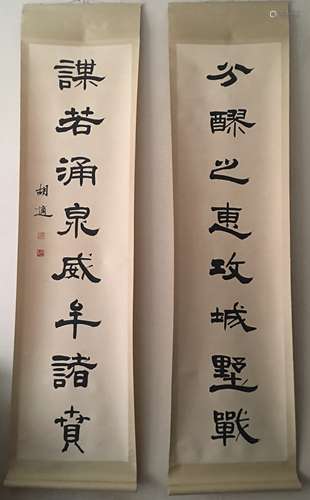 分醪之惠攻城墅戰
謀若涌泉威牟諸賁
胡適